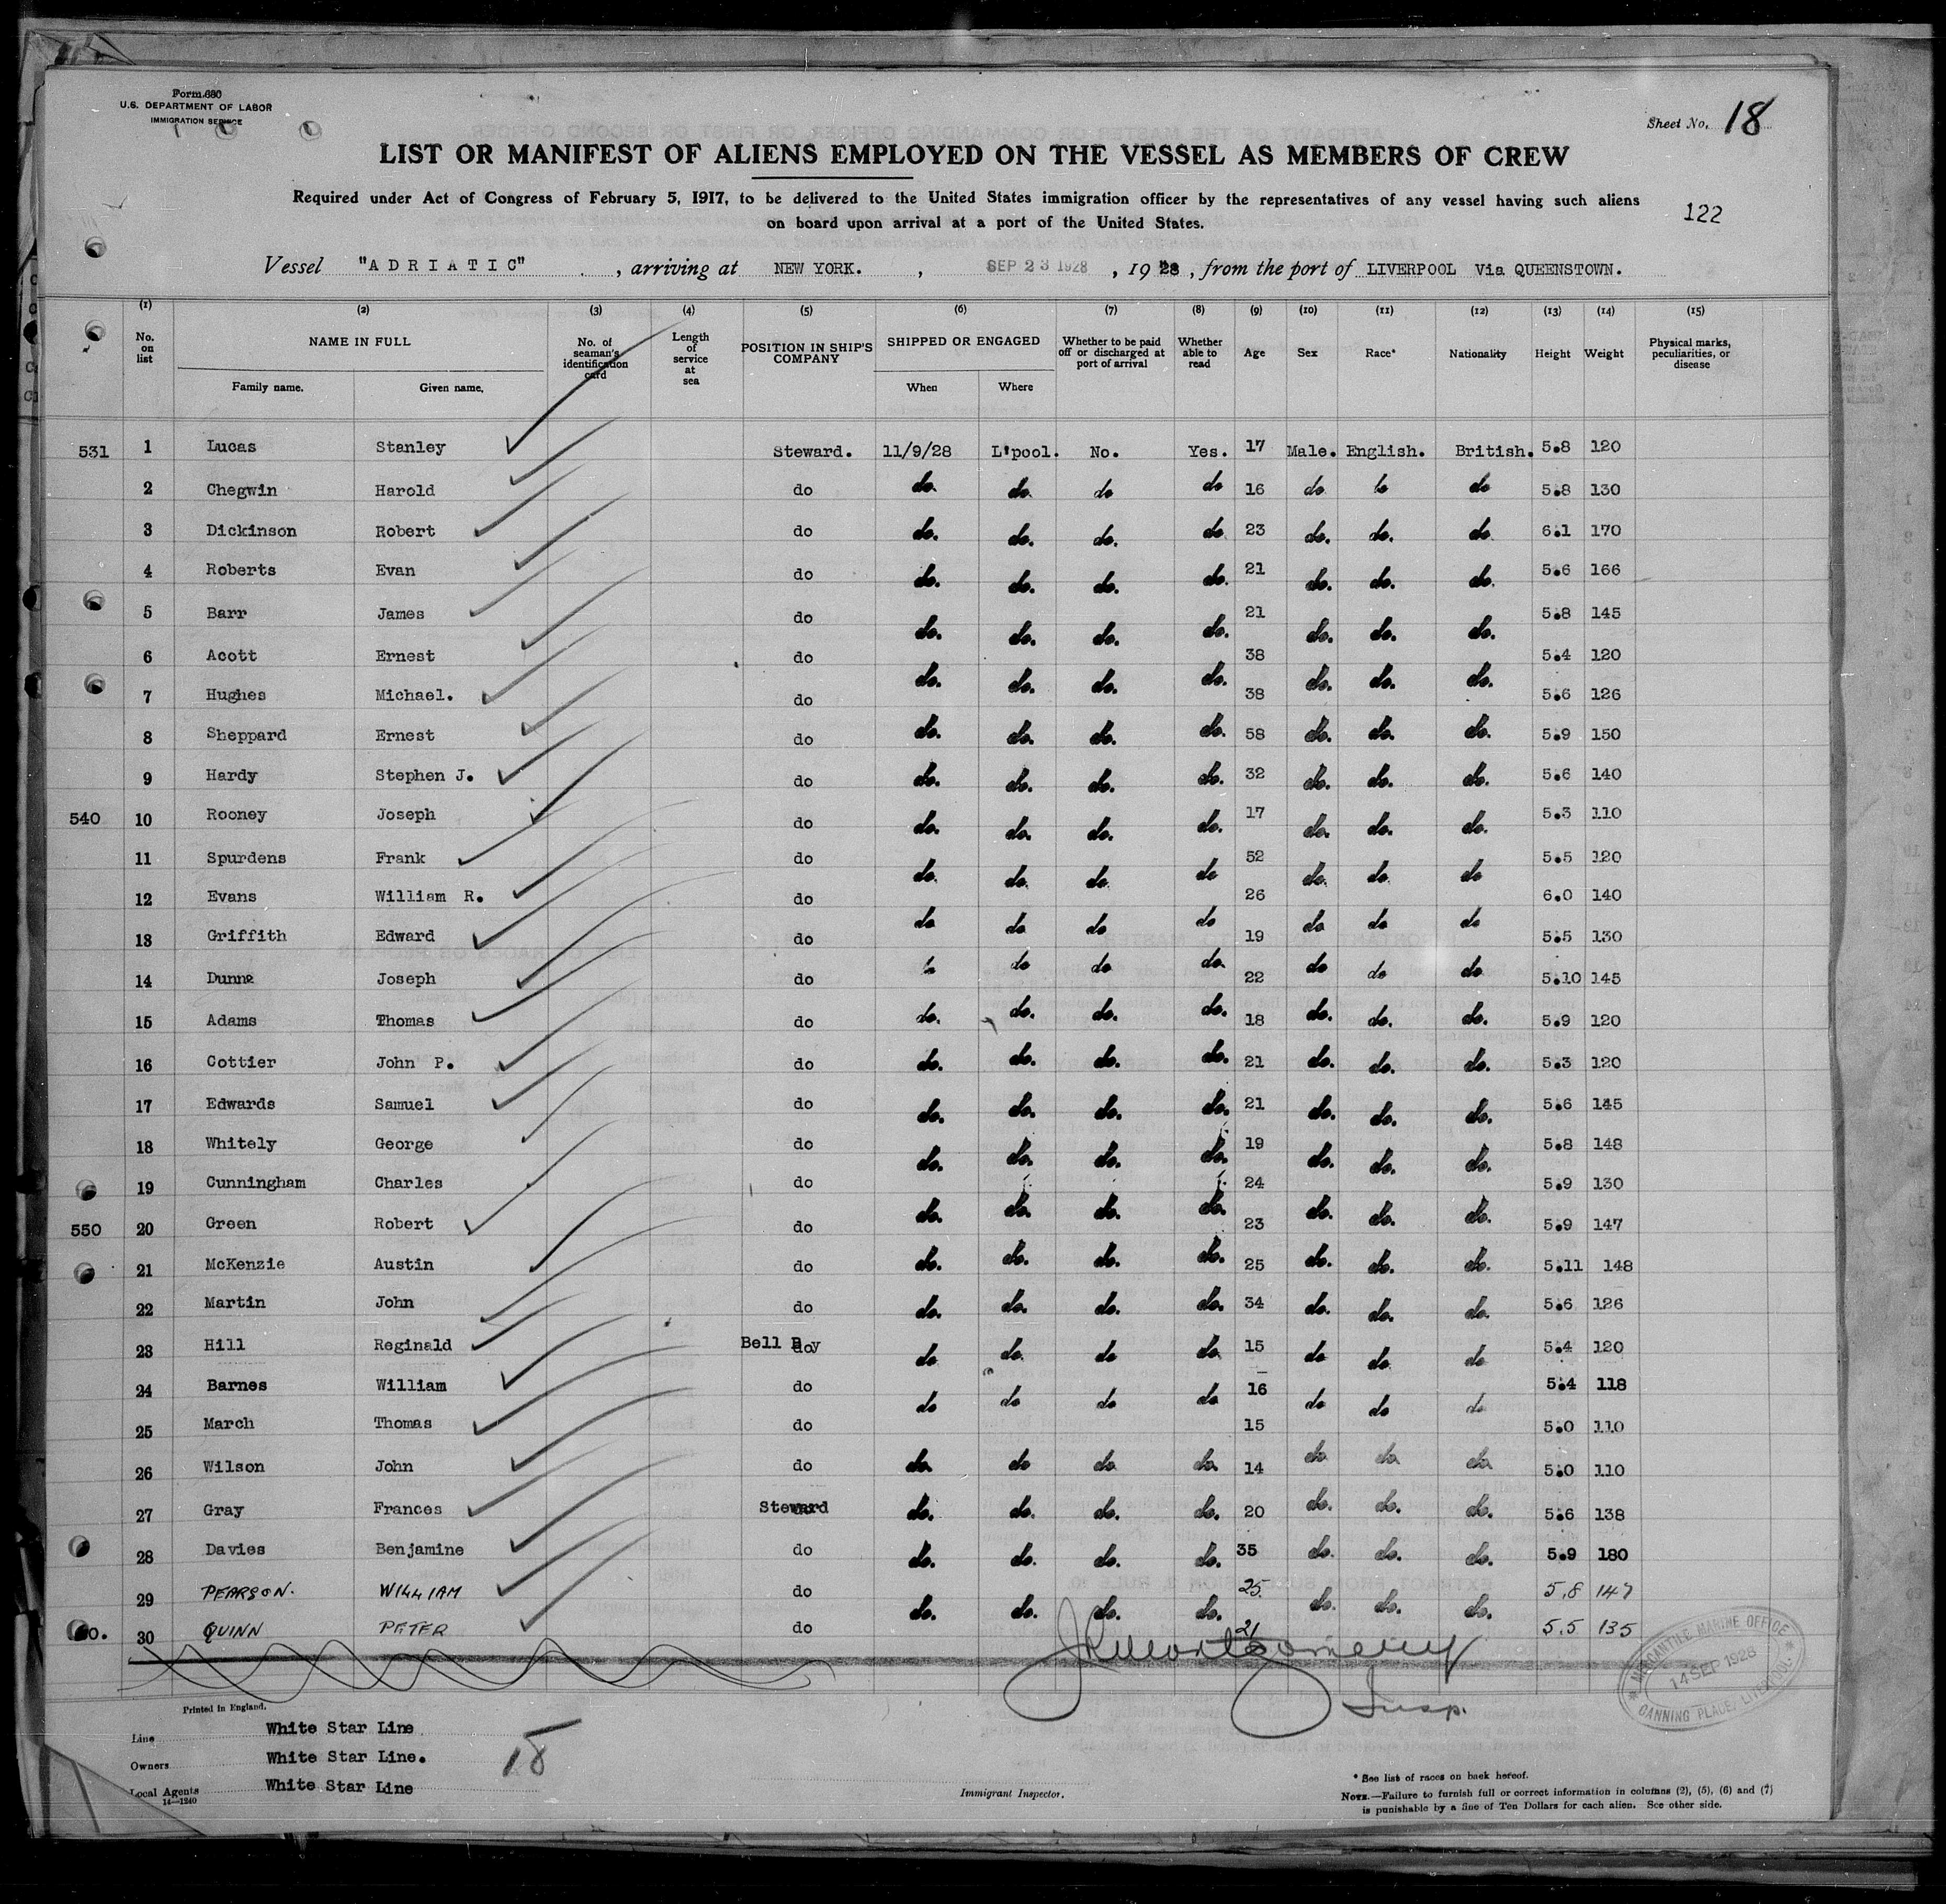 Form 680
U.S. DEPARTMENT OF LABOR
IMMIGRATION SERVICE
Sheet No. 18
LIST OR MANIFEST OF ALIENS EMPLOYED ON THE VESSEL AS MEMBERS OF CREW
Required under Act of Congress of February 5, 1917, to be delivered to the United States immigration officer by the representatives of any vessel having such aliens
on board upon arrival at a port of the United States.
122
Vessel "ADRIATIC", arriving at NEW YORK. , SEP 23 1928 , 1928, from the port of LIVERPOOL Via QUEENSTOWN.
(1) (2) (3) (4) (5) (6) (7) (8) (9) (10) (11) (12) (13) (14) (15)
No. on list NAME IN FULL Family name. Given name. No. of seaman's identification card Length of service at sea POSITION IN SHIP'S COMPANY SHIPPED OR ENGAGED When Where Whether to be paid off or discharged at port of arrival Whether able to read Age Sex Race* Nationality Height Weight Physical marks, peculiarities, or disease
531 1 Lucas Stanley Steward. 11/9/28 L'pool. No. Yes. 17 Male. English. British. 5.8 120
2 Chegwin Harold do do do do do 16 do do do 5.8 130
3 Dickinson Robert do do. do. do. do 23 do. do. do 6.1 170
4 Roberts Evan do do. do. do. do. 21 do. do. do. 5.6 166
5 Barr James do do. do. do. do. 21 do. do. do. 5.8 145
6 Acott Ernest do do. do. do. do. 38 do. do. do. 5.4 120
7 Hughes Michael. do 38 5.6 126
8 Sheppard Ernest do do. do. do. do. 58 do. do. do. 5.9 150
9 Hardy Stephen J. do do. do. do. do. 32 do. do. do. 5.6 140
540 10 Rooney Joseph do do. do. do. do. 17 do. do. do. 5.3 110
11 Spurdens Frank do do. do. do do 52 do. do do 5.5 120
12 Evans William R. do do do do do 26 do do do 6.0 140
13 Griffith Edward do 19 5.5 130
14 Dunne Joseph do do do do do 22 do do do 5.10 145
15 Adams Thomas do do. do. do. do. 18 do. do. do. 5.9 120
16 Cottier John P. do do. do. do. do. 21 do. do. do. 5.3 120
17 Edwards Samuel do do. do. do. do. 21 do. do. do. 5.6 145
18 Whitely George do do. do. do. do. 19 do. do. do. 5.8 148
19 Cunningham Charles do do. do. do. do. 24 do. do. do. 5.9 130
550 20 Green Robert do 23 5.9 147
21 McKenzie Austin do do. do. do. do. 25 do. do. do. 5.11 148
22 Martin John do do. do. do. do. 34 do. do. do. 5.6 126
23 Hill Reginald Bell Boy do do do do 15 do do do 5.4 120
24 Barnes William do do do do do 16 do do do 5.4 118
25 March Thomas do 15 5.0 110
26 Wilson John do do do do do 14 do do do 5.0 110
27 Gray Frances Steward do. do. do. do. 20 do. do. do. 5.6 138
28 Davies Benjamine do do. do. do. do. 35 do. do. do. 5.9 180
29 PEARSON. WILLIAM do do. do. do. do. 25. do. do. do. 5.8 147
30 QUINN PETER do 21 5.5 135
JKMontgomery
Insp.
MERCANTILE MARINE OFFICE
14 SEP 1928
CANNING PLACE, LIVERPOOL
Printed in England.
Line White Star Line
Owners White Star Line.
Local Agents White Star Line
14—1240
18
Immigrant Inspector.
* See list of races on back hereof.
NOTE.—Failure to furnish full or correct information in columns (2), (5), (6) and (7)
is punishable by a fine of Ten Dollars for each alien. See other side.